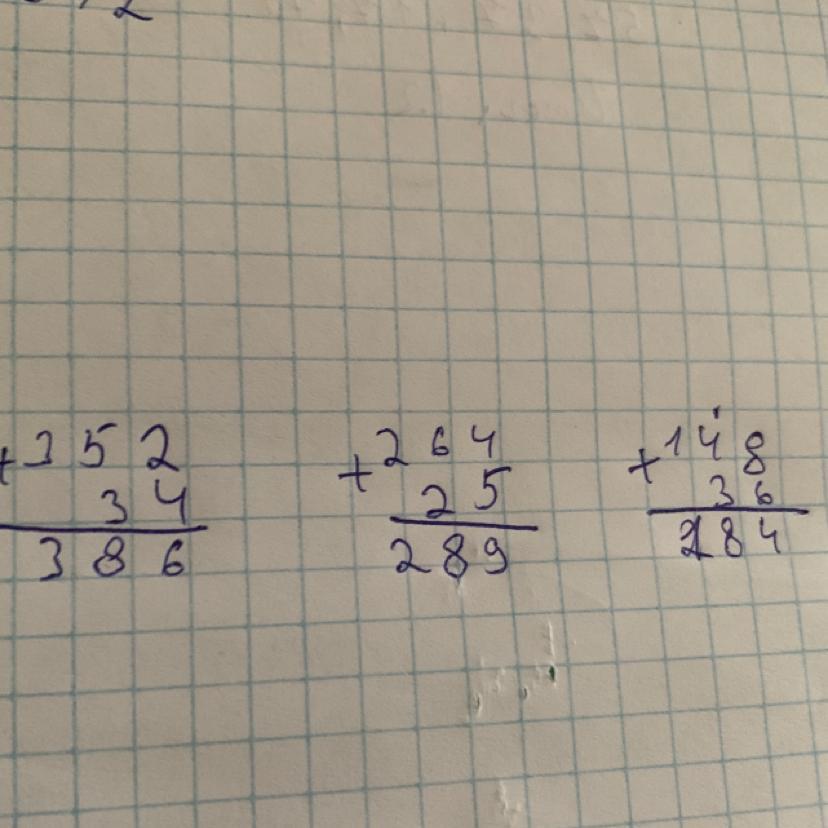 +352
34
386
+264
25
289
+148
36
184